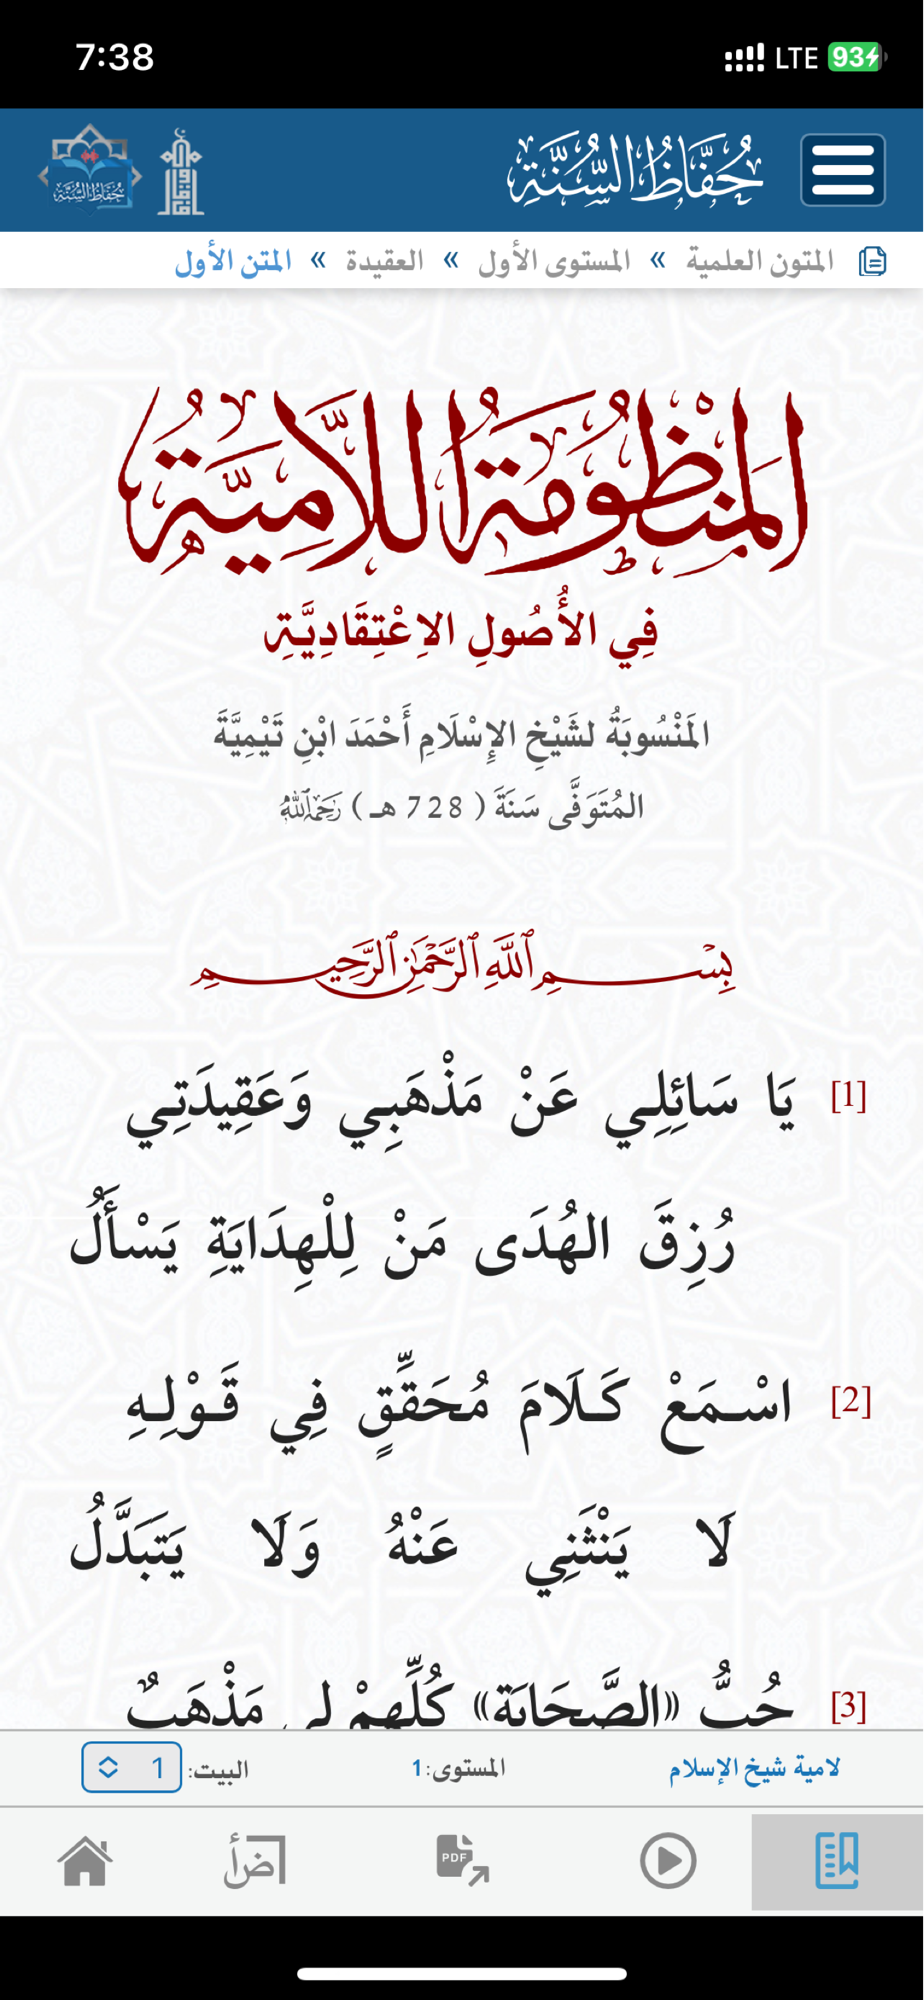 7:38 LTE 93
حُفَّاظُ السُّنَّةِ
حُفَّاظُ السُّنَّةِ
المتون العلمية » المستوى الأول » العقيدة » المتن الأول
المَنْظُومَةُ اللَّامِيَّةُ
فِي الأُصُولِ الاِعْتِقَادِيَّةِ
المَنْسُوبَةُ لشَيْخِ الإِسْلَامِ أَحْمَدَ ابْنِ تَيْمِيَّةَ
المُتَوَفَّى سَنَةَ ( 728 هـ ) رَحِمَهُ اللهُ
بِسْمِ اللَّهِ الرَّحْمَٰنِ الرَّحِيمِ
[1] يَا سَائِلِي عَنْ مَذْهَبِي وَعَقِيدَتِي
رُزِقَ الهُدَى مَنْ لِلْهِدَايَةِ يَسْأَلُ
[2] اسْـمَعْ كَـلَامَ مُحَقِّقٍ فِي قَـوْلِـهِ
لَا يَنْثَنِي عَنْهُ وَلَا يَتَبَدَّلُ
[3] حُبُّ «الصَّحَابَةِ» كُلِّهِمْ لِي مَذْهَبٌ
لامية شيخ الإسلام المستوى:1 البيت: 1
PDF أضـ